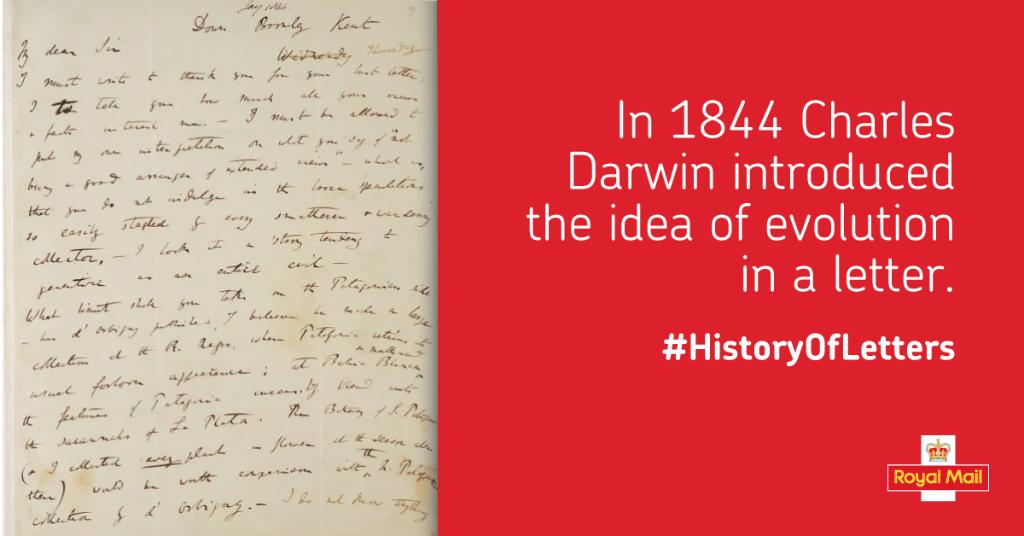 3
Down Bromley Kent
Thursday
My dear Sir
I must write to thank you for your last letter.
I to tell you how much all your views
& facts interest me. — I must be allowed to
put my own interpretation on what you say of "not
being a good arranger of extended views" — which is,
that you do not indulge in the loose speculations
so easily started by every smatterer & wandering
collector. — I look at a strong tendency to
generalize as an entire evil —
What limit shall you take on the Patagonian side
— has d'Orbigny published, I believe he made a large
collection at the R. Negro, where Patagonia retains its
usual forlorn appearance; at Bahia Blanca & northward
the features of Patagonia insensibly blend into
the savannahs of La Plata. The Botany of S. Patagonia
(& I collected every plant in flower at the season when
there) would be worth comparison with the N. Patagonian
collection by d'Orbigny. — I do not know anything
In 1844 Charles
Darwin introduced
the idea of evolution
in a letter.
#HistoryOfLetters
Royal Mail